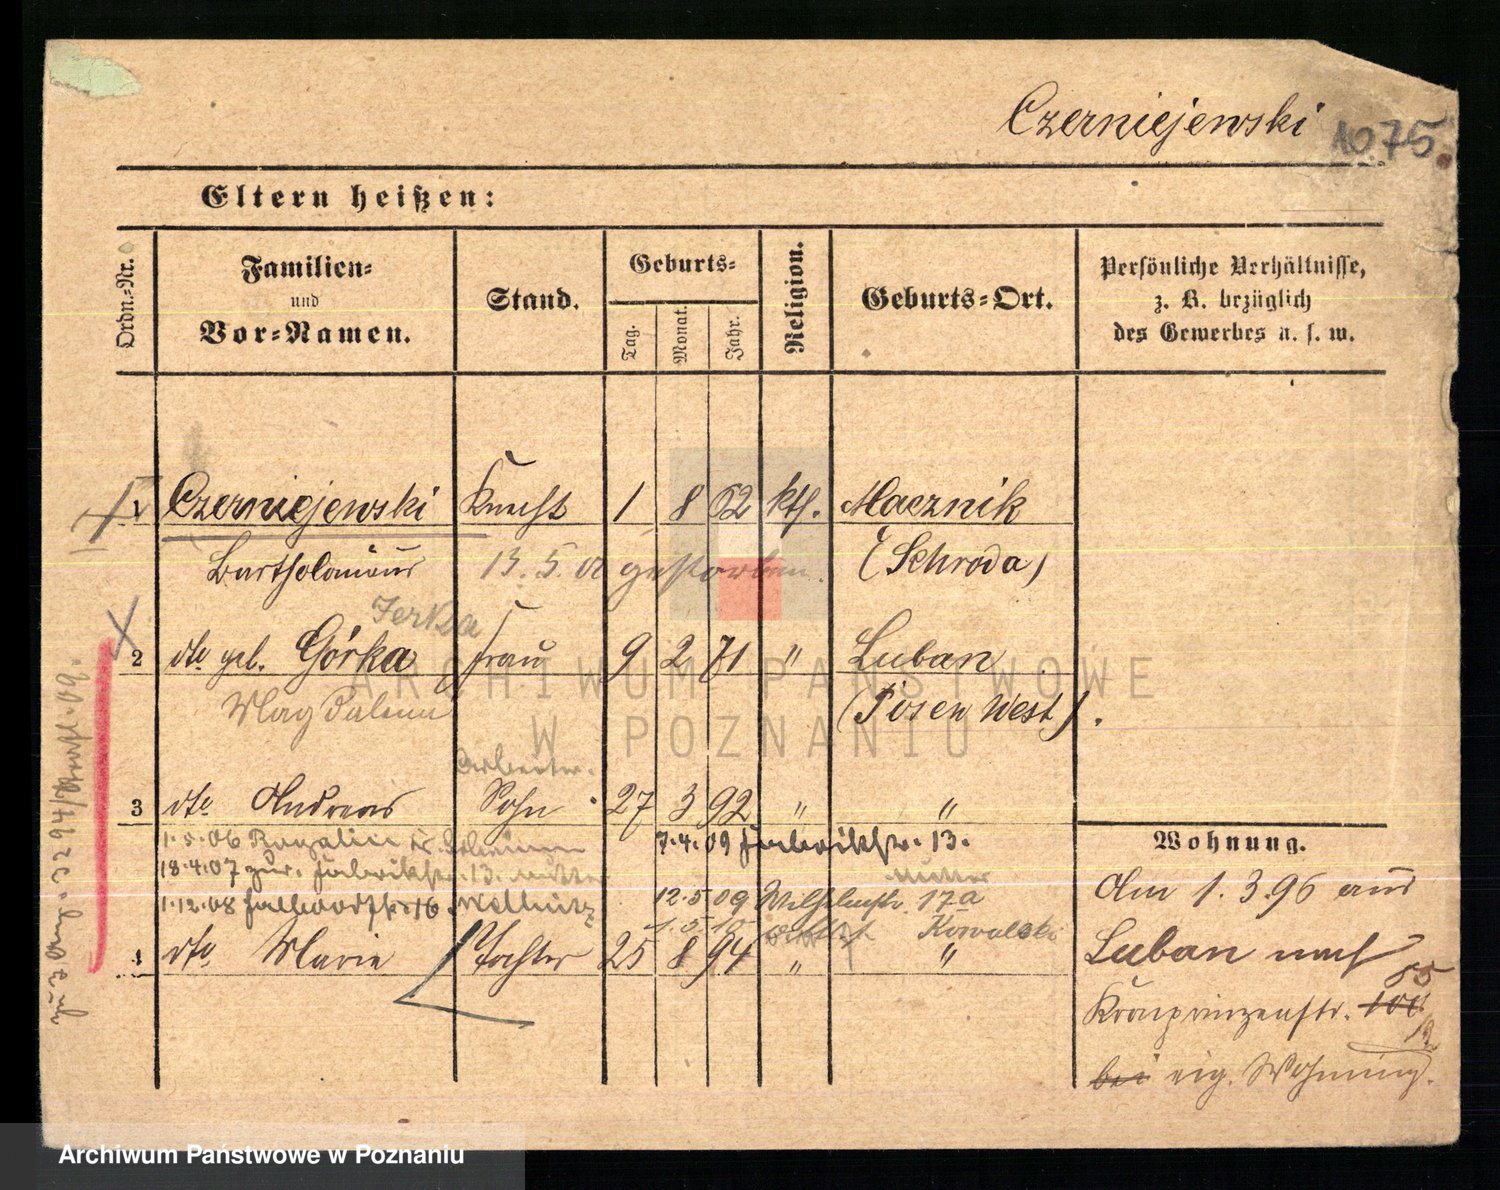 Czerniejewski 1075.
Eltern heißen:
Ordn.-Nr.
Familien-
und
Vor-Namen.
Stand.
Geburts-
Tag.
Monat.
Jahr.
Religion.
Geburts-Ort.
Persönliche Verhältnisse,
z. B. bezüglich
des Gewerbes u. s. w.
1 Czerniejewski Knecht 1 8 62 kth. Macznik
Bartholomäus 13. 5. 01 gestorben. (Schroda)
2 dto geb. Górka Frau 9 2 71 " Luban
Magdalena (Posen West).
Arbeiter.
3 dto Andreas Sohn 27 3 92 " "
1.5.06
7.4.09 Fabrikstr. 13.
18.4.07 zur. Fabrikstr. 13. Mutter
Mutter
1.12.08
12.5.09 Wilhelmstr. 17a
1.5.10 Kowalski
4 dto Marie Tochter 25 8 94 " "
Wohnung.
Am 1.3.96 aus
Luban nach
85
Kronprinzenstr. 100
bei eig. Wohnung.
ARCHIWUM PAŃSTWOWE
W POZNANIU
Archiwum Państwowe w Poznaniu